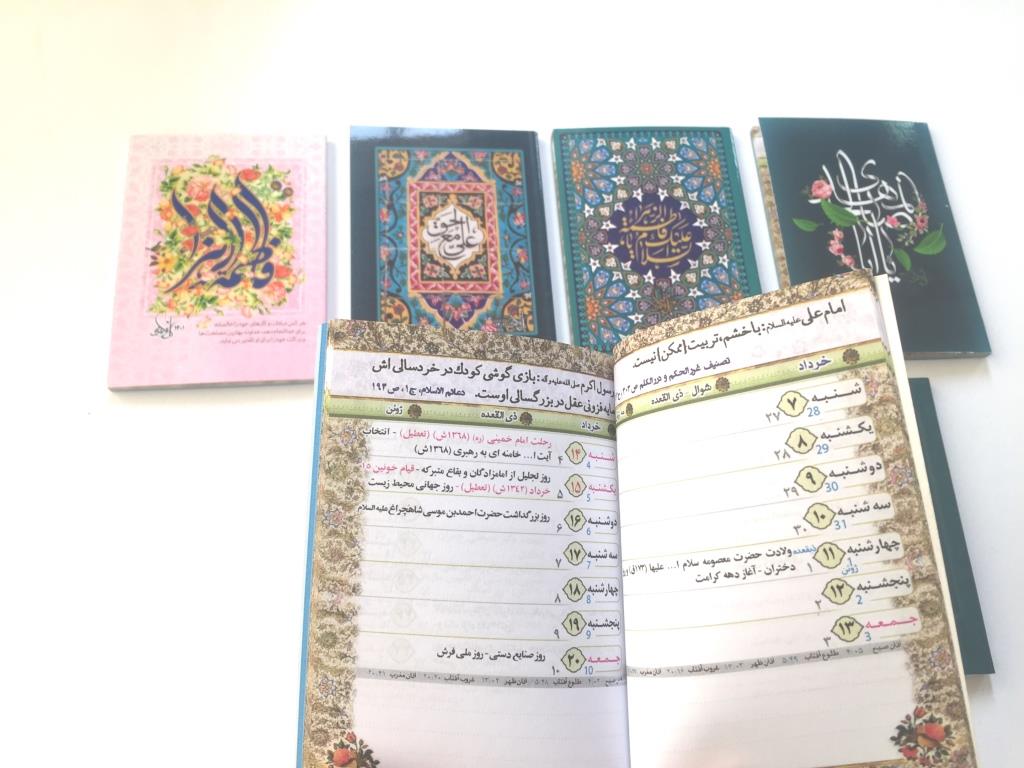 فاطمة الزهرا
۱۴۰۱
علی مع الحق
امام علی علیه السلام: با خشم، تربیت [ممکن] نیست.
تصنیف غررالحکم و دررالکلم ص ۳۰۲
خرداد
شوال - ذی القعده
شنبه ۷ 28 ۲۷
یکشنبه ۸ 29 ۲۸
دوشنبه ۹ 30 ۲۹
سه شنبه ۱۰ 31 ۳۰
چهارشنبه ۱۱ ژوئن 1 ذیقعده ۱ ولادت حضرت معصومه سلام ا... علیها (۱۷۳ق) و
دختران - آغاز دهه کرامت
پنجشنبه ۱۲ 2 ۲
جمعه ۱۳ 3 ۳
اذان صبح ۴:۰۵ طلوع آفتاب ۵:۴۹ اذان ظهر ۱۳:۰۲ غروب آفتاب ۲۰:۱۶ اذان مغرب
رسول اکرم صلی الله علیه و آله: بازی گوشی کودک در خردسالی اش
مایه فزونی عقل در بزرگسالی اوست. دعائم الاسلام، ج۱، ص۱۹۴
خرداد ذی القعده ژوئن
شنبه ۱۴ 4 ۴ رحلت امام خمینی (ره) (۱۳۶۸ش) (تعطیل) - انتخاب
آیت ا... خامنه ای به رهبری (۱۳۶۸ش)
یکشنبه ۱۵ 5 ۵ روز تجلیل از امامزادگان و بقاع متبرکه - قیام خونین ۱۵
خرداد (۱۳۴۲ش) (تعطیل) - روز جهانی محیط زیست
دوشنبه ۱۶ 6 ۶ روز بزرگداشت حضرت احمدبن موسی شاهچراغ علیه السلام
سه شنبه ۱۷ 7 ۷
چهارشنبه ۱۸ 8 ۸
پنجشنبه ۱۹ 9 ۹
جمعه ۲۰ 10 ۱۰ روز صنایع دستی - روز ملی فرش
اذان صبح ۴:۰۲ طلوع آفتاب ۵:۴۸ اذان ظهر ۱۳:۰۲ غروب آفتاب ۲۰:۲۰ اذان مغرب ۲۰:۴۱